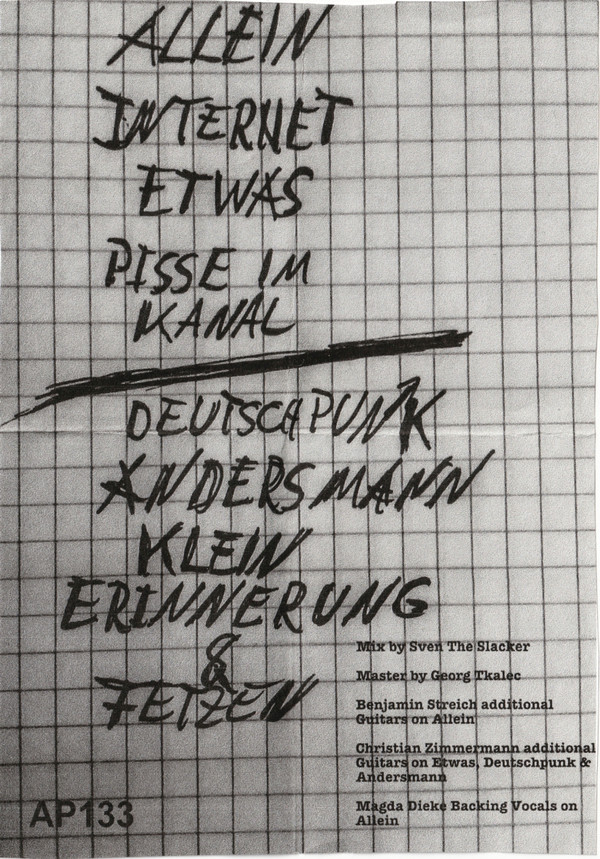 ALLEIN
INTERNET
ETWAS
PISSE IM
KANAL
DEUTSCHPUNK
ANDERSMANN
KLEIN
ERINNERUNG
&
FETZEN
Mix by Sven The Slacker
Master by Georg Tkalec
Benjamin Streich additional
Guitars on Allein
Christian Zimmermann additional
Guitars on Etwas, Deutschpunk &
Andersmann
Magda Dieke Backing Vocals on
Allein
AP133